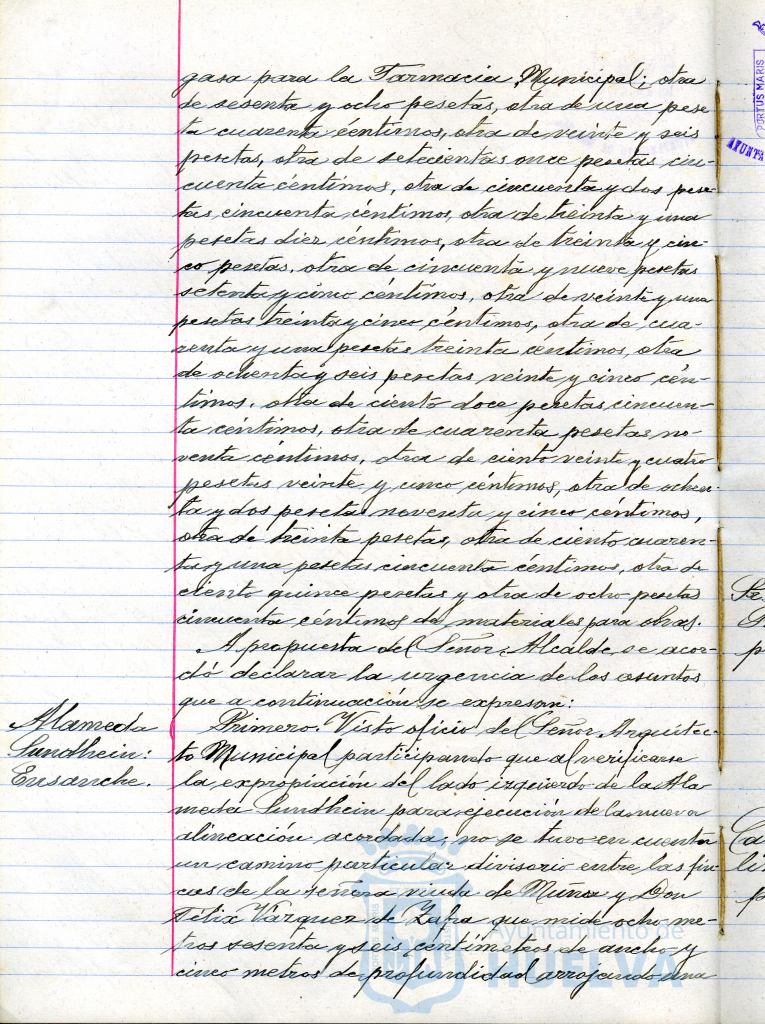 gasa para la Farmacia Municipal; otra
de sesenta y ocho pesetas, otra de una pese
ta cuarenta céntimos, otra de veinte y seis
pesetas, otra de setecientas once pesetas cin-
cuenta céntimos, otra de cincuenta y dos pese-
tas cincuenta céntimos, otra de treinta y una
pesetas diez céntimos, otra de treinta y cin-
co pesetas, otra de cincuenta y nueve pesetas
setenta y cinco céntimos, otra de veinte y una
pesetas treinta y cinco céntimos, otra de cua-
renta y una pesetas treinta céntimos, otra
de ochenta y seis pesetas veinte y cinco cén-
timos, otra de ciento doce pesetas cincuen-
ta céntimos, otra de cuarenta pesetas no-
venta céntimos, otra de ciento veinte y cuatro
pesetas veinte y cinco céntimos, otra de ochen-
ta y dos pesetas noventa y cinco céntimos,
otra de treinta pesetas, otra de ciento cuaren-
ta y una pesetas cincuenta céntimos, otra de
ciento quince pesetas y otra de ocho pesetas
cincuenta céntimos de materiales para obras.
A propuesta del Señor Alcalde, se acor-
dó declarar la urgencia de los asuntos
que a continuación se expresan:
Alameda
Sundhein:
Ensanche.
Primero. Visto oficio del Señor Arquitec-
to Municipal participando que al verificarse
la expropiación del lado izquierdo de la Ala
meda Sundhein para ejecución de la nueva
alineación acordada, no se tuvo en cuenta
un camino particular divisorio entre las fin-
cas de la señora viuda de Muñoz y Don
Félix Vázquez de Zafra que mide ocho me-
tros sesenta y seis centímetros de ancho y
cinco metros de profundidad arrojando una
Ayuntamiento de
HUELVA
PORTUS MARIS
AYUNTA